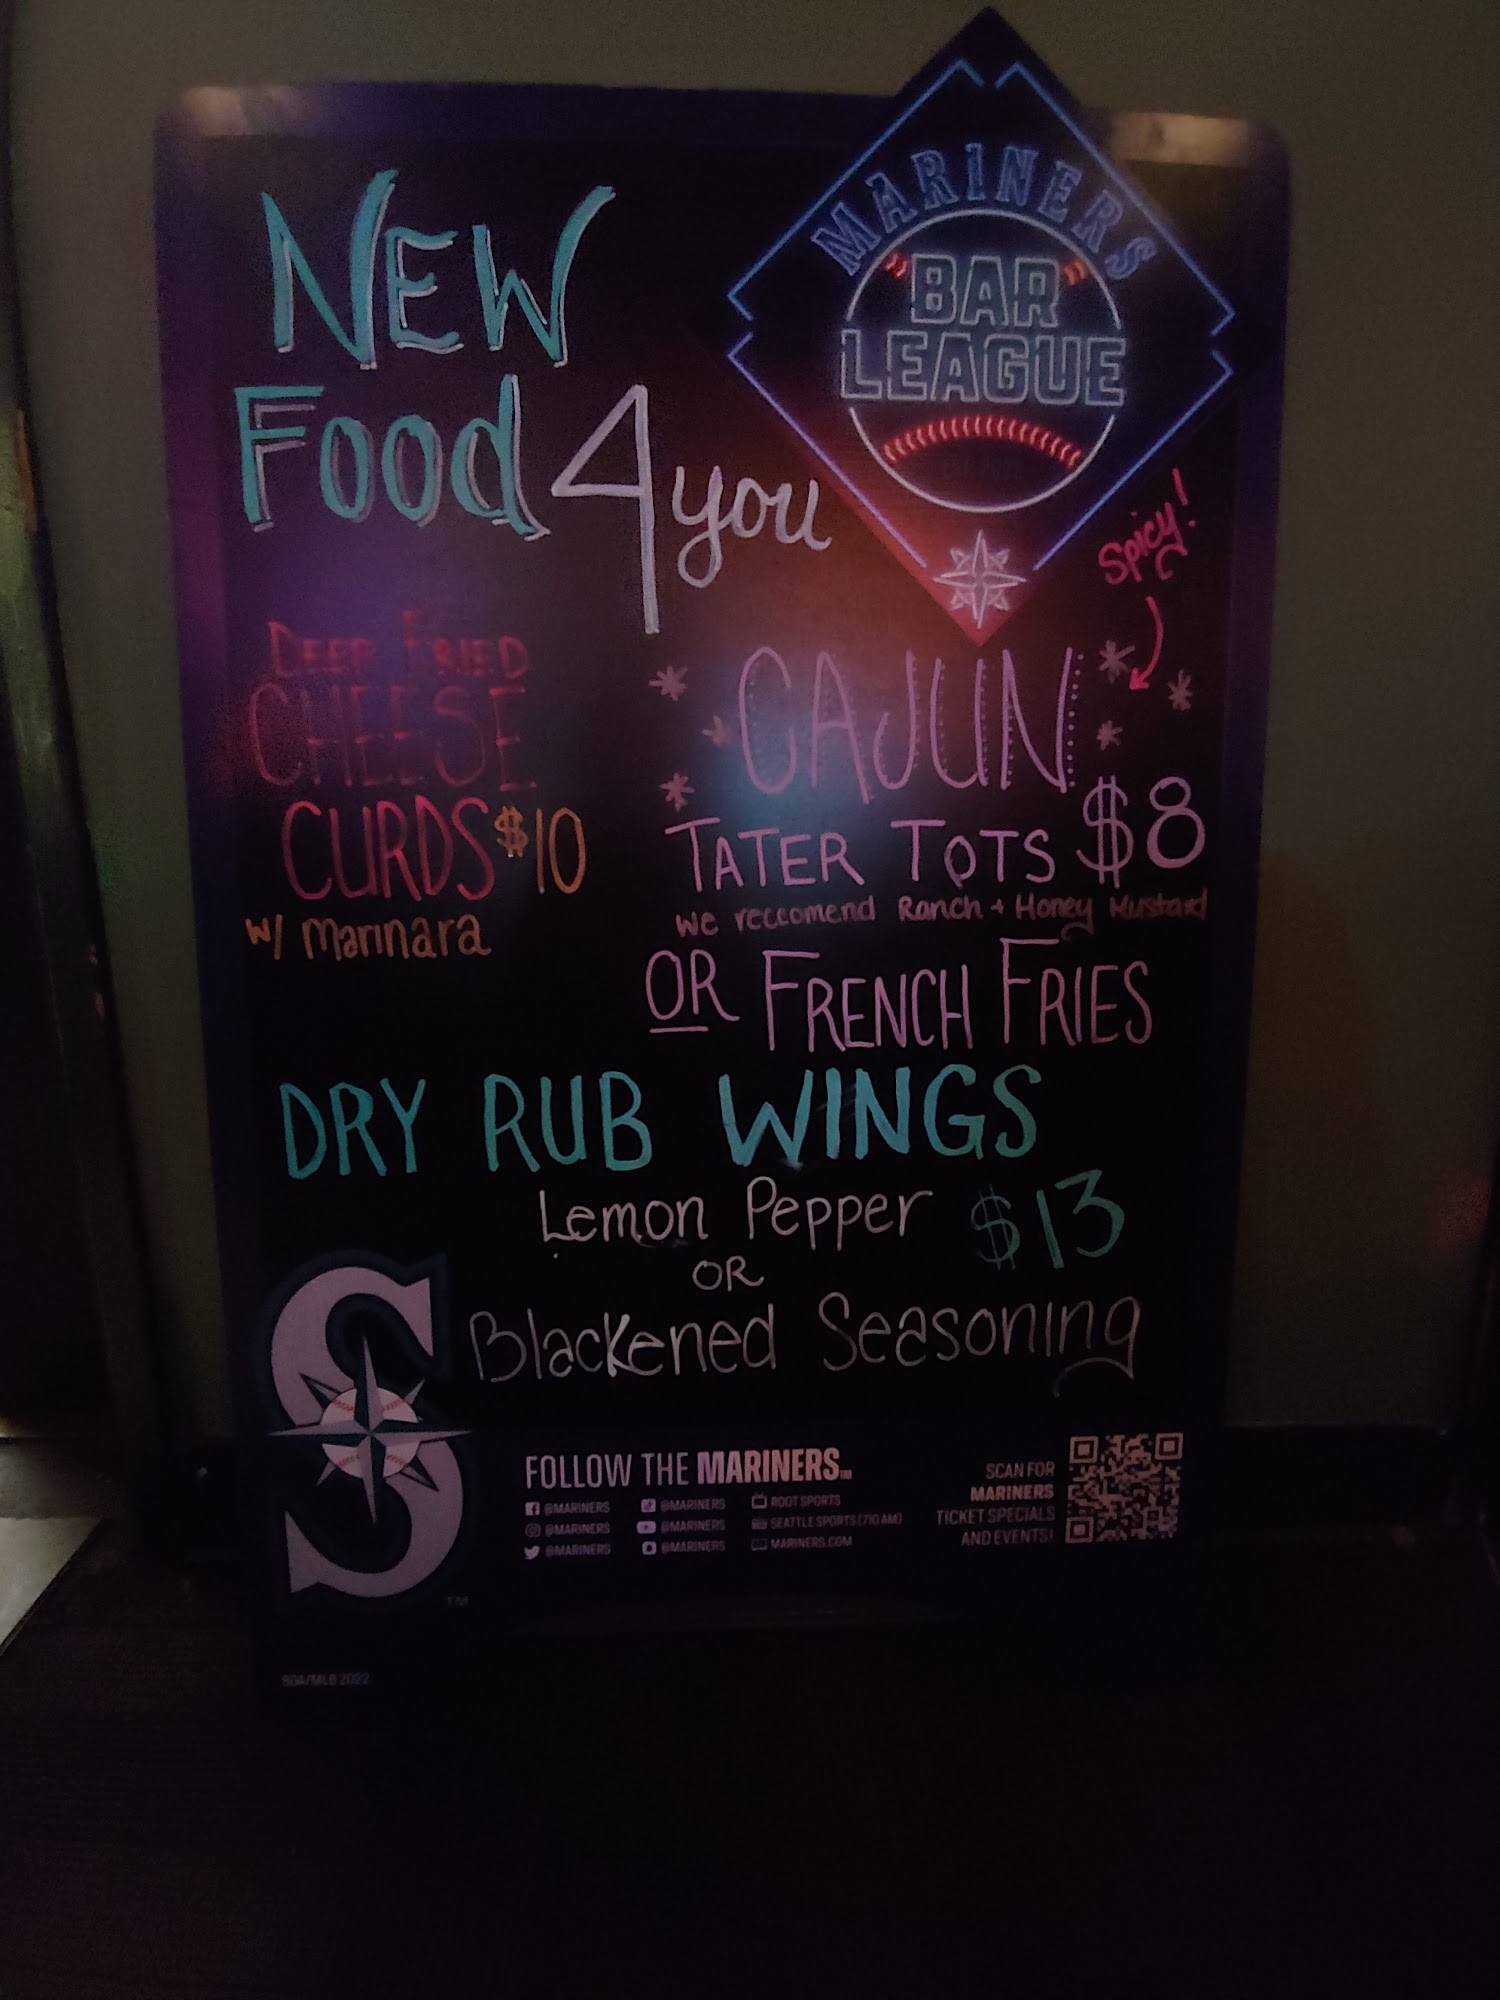 MARINERS
BAR
LEAGUE
NEW
FOOD 4 you
Spicy!
DEEP FRIED
CHEESE
CURDS $10
w/ marinara
CAJUN
TATER TOTS $8
we reccomend Ranch + Honey Mustard
OR FRENCH FRIES
DRY RUB WINGS
Lemon Pepper $13
OR
Blackened Seasoning
S
TM
FOLLOW THE MARINERS
@MARINERS @MARINERS ROOT SPORTS
@MARINERS @MARINERS SEATTLE SPORTS (710 AM)
@MARINERS @MARINERS MARINERS.COM
SCAN FOR
MARINERS
TICKET SPECIALS
AND EVENTS!
SGA/MLB 2022